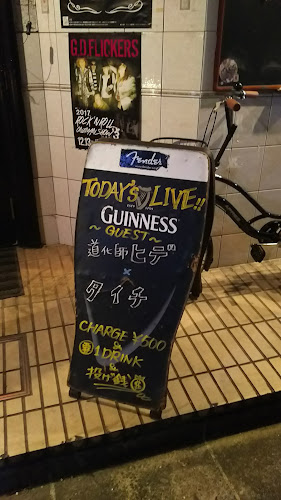 G.D.FLICKERS
2017
ROCK'N ROLL
12.13
Fender
TODAY'S LIVE!!
GUINNESS
~GUEST~
道化師ヒデ
×
タイチ
CHARGE ¥500
&
1DRINK
&
投げ銭